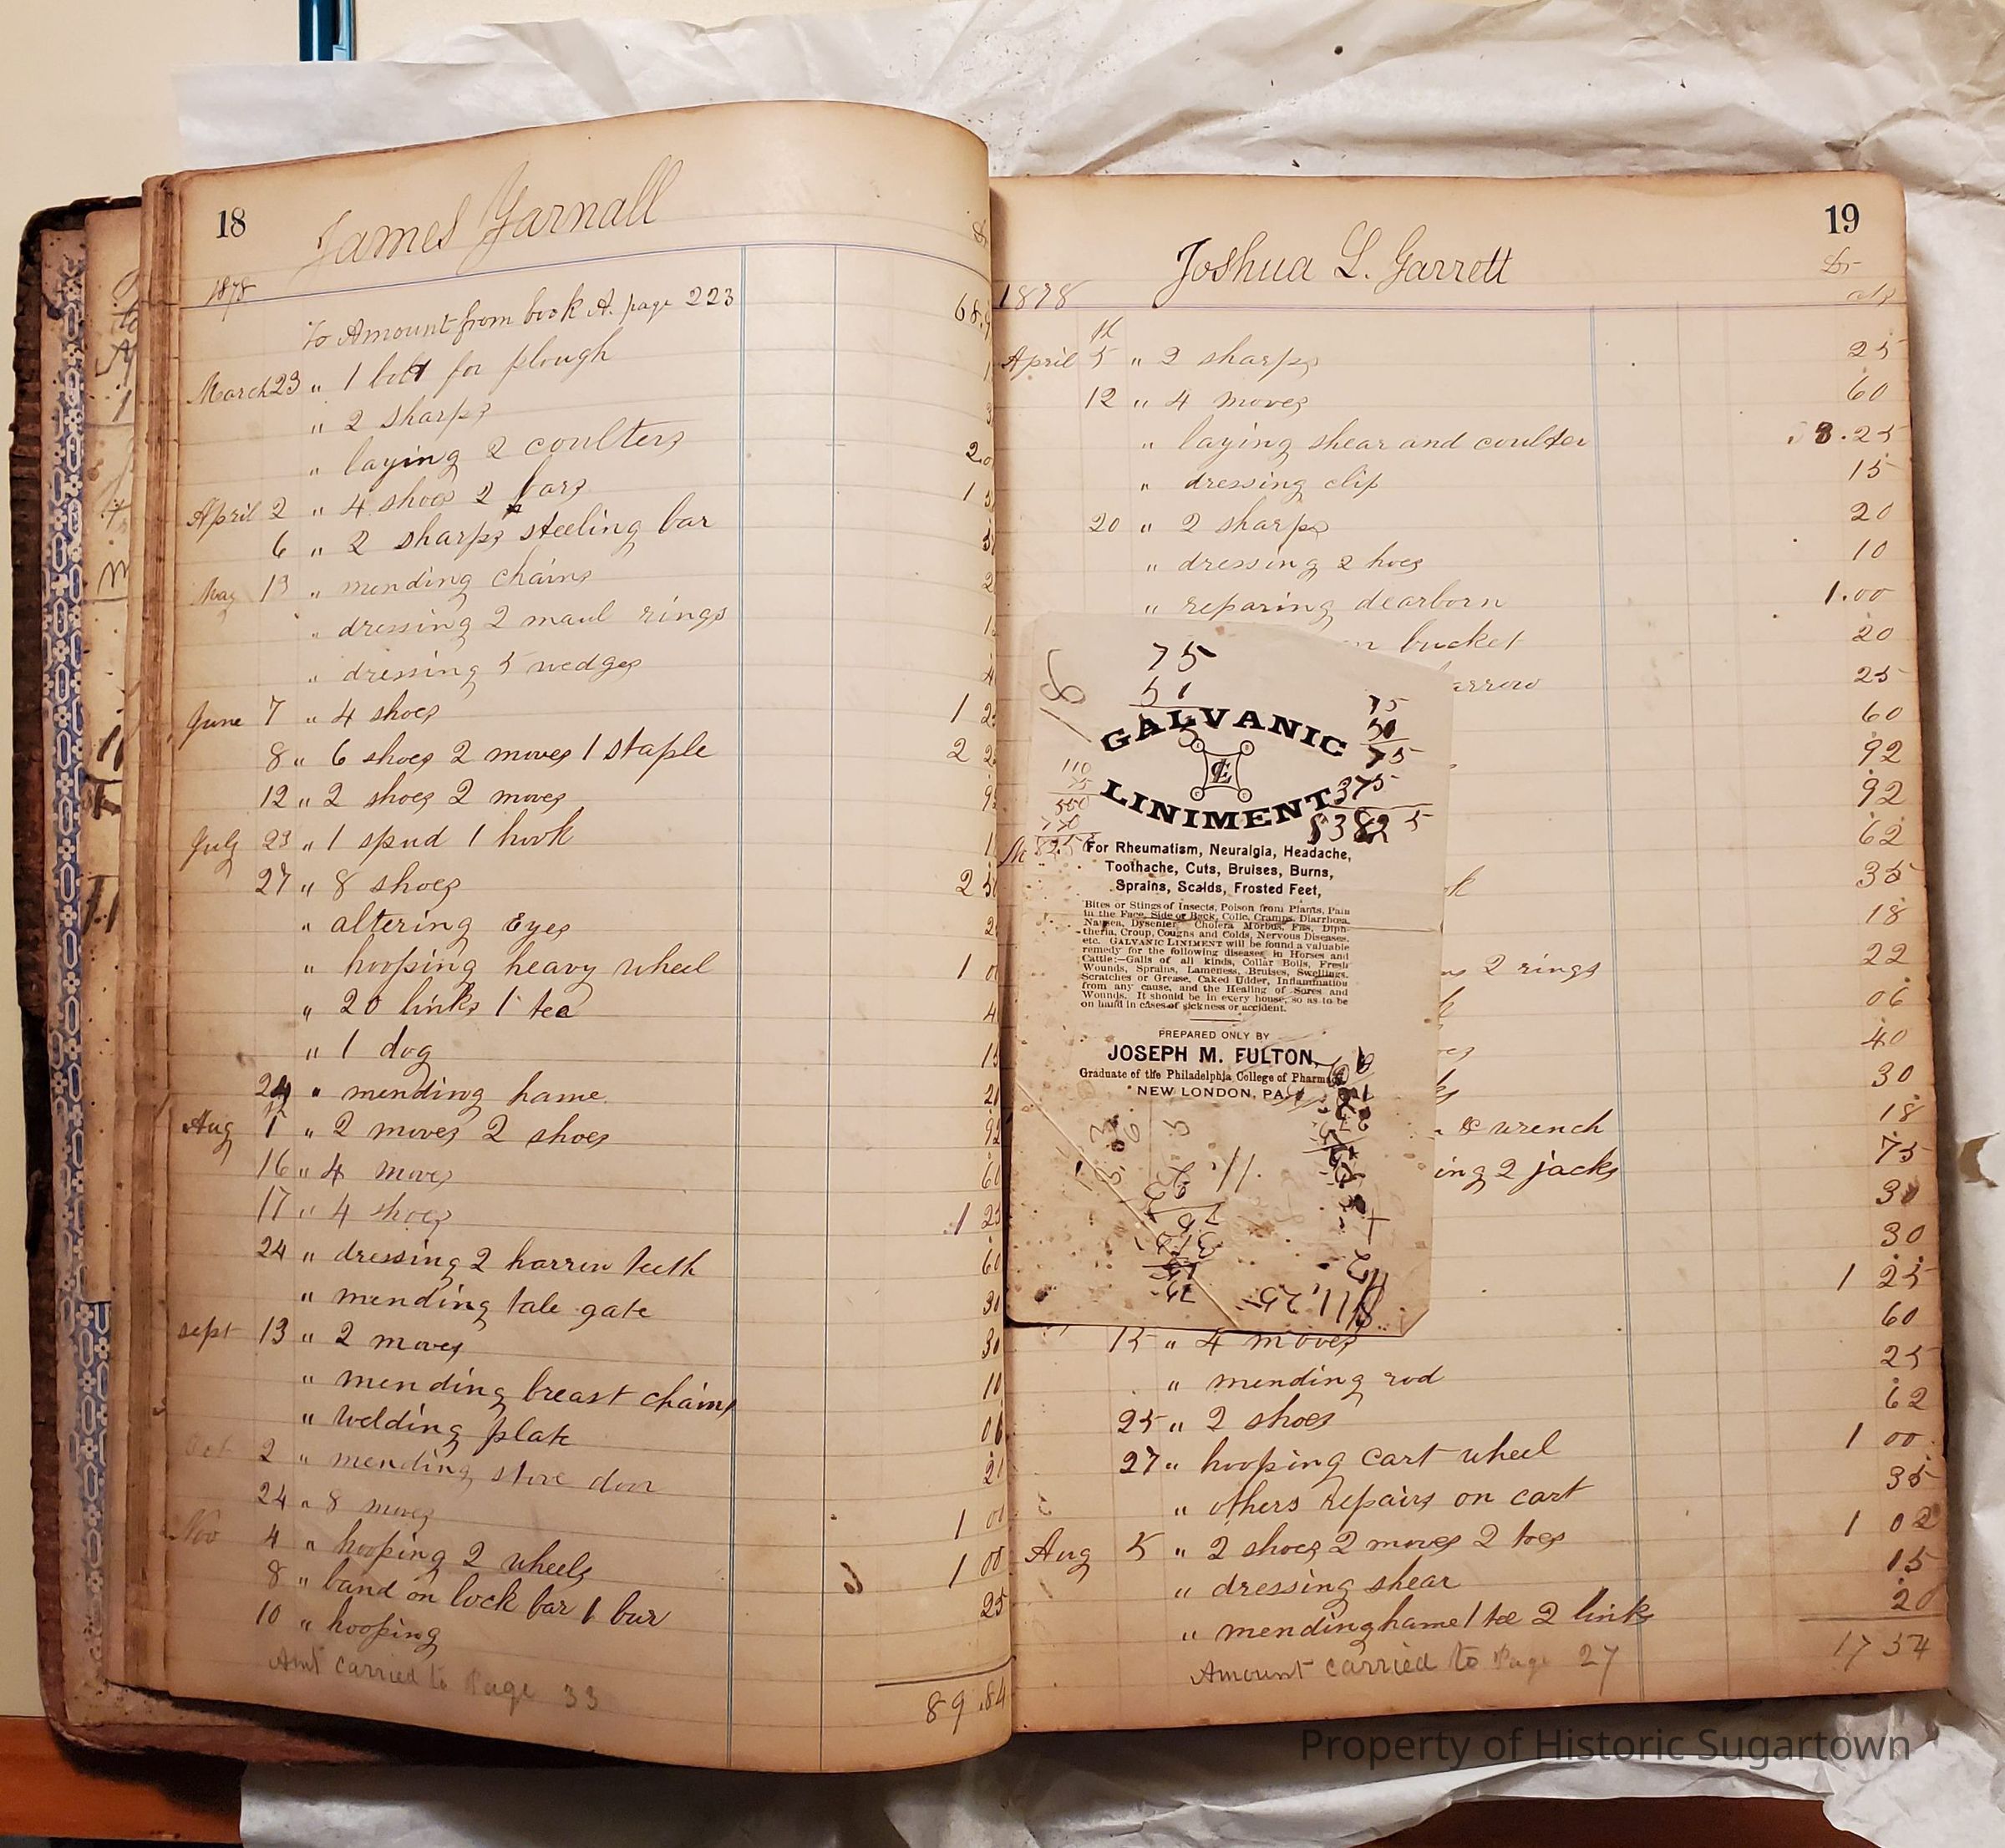 18
James Yarnall
1878
To Amount from book A. page 223 68.
March 23 " 1 bolt for plough
" 2 sharps
" laying 2 coulters
April 2 " 4 shoes 2 bars
6 " 2 sharps steeling bar
May 13 " mending chains
" dressing 2 maul rings
" dressing 5 wedges
June 7 " 4 shoes
8 " 6 shoes 2 moves 1 staple
12 " 2 shoes 2 moves
July 23 " 1 spud 1 hook
27 " 8 shoes
" altering Eyes
" hooping heavy wheel
" 20 links 1 tee
" 1 dog
24 " mending hame
Aug 1 " 2 moves 2 shoes
16 " 4 moves
17 " 4 shoes
24 " dressing 2 harrow teeth
" mending tale gate 30
sept 13 " 2 moves 30
" mending breast chains 10
" welding plate 06
Oct 2 " mending stove door
24 " 8 moves 1 00
Nov 4 " hooping 2 wheels 1 00
8 " band on lock bar 1 bur 25
10 " hooping
Amt carried to Page 33
89.84
19
Joshua L. Garrett
Dr
1878 cts
April 5th " 2 sharps 25
12 " 4 moves 60
" laying shear and coulter 3.25
" dressing clip 15
20 " 2 sharps 20
" dressing 2 hoes 10
" reparing dearborn 1.00
bucket 20
arrow 25
60
92
92
62
35
18
2 rings 22
06
40
30
& wrench 18
ing 2 jacks 75
30
30
1 25
15 " 4 moves 60
" mending rod 25
25 " 2 shoes 62
27 " hooping cart wheel 1 00
" others repairs on cart 35
Aug 5 " 2 shoes 2 moves 2 toes 1 02
" dressing shear 15
" mending hame 1 tee 2 links 20
Amount carried to Page 27 17 54
75
51
75
50
75
375
110
75
550
770
8250
GALVANIC
LINIMENT
For Rheumatism, Neuralgia, Headache,
Toothache, Cuts, Bruises, Burns,
Sprains, Scalds, Frosted Feet,
Bites or Stings of Insects, Poison from Plants, Pain
in the Face, Side or Back, Colic, Cramps, Diarrhœa,
Nausea, Dysentery, Cholera Morbus, Fits, Diph-
theria, Croup, Coughs and Colds, Nervous Diseases,
etc. GALVANIC LINIMENT will be found a valuable
remedy for the following diseases in Horses and
Cattle:—Galls of all kinds, Collar Boils, Fresh
Wounds, Sprains, Lameness, Bruises, Swellings,
Scratches or Grease, Caked Udder, Inflammation
from any cause, and the Healing of Sores and
Wounds. It should be in every house, so as to be
on hand in cases of sickness or accident.
PREPARED ONLY BY
JOSEPH M. FULTON,
Graduate of the Philadelphia College of Pharmacy
NEW LONDON, PA.
$11,25
Property of Historic Sugartown